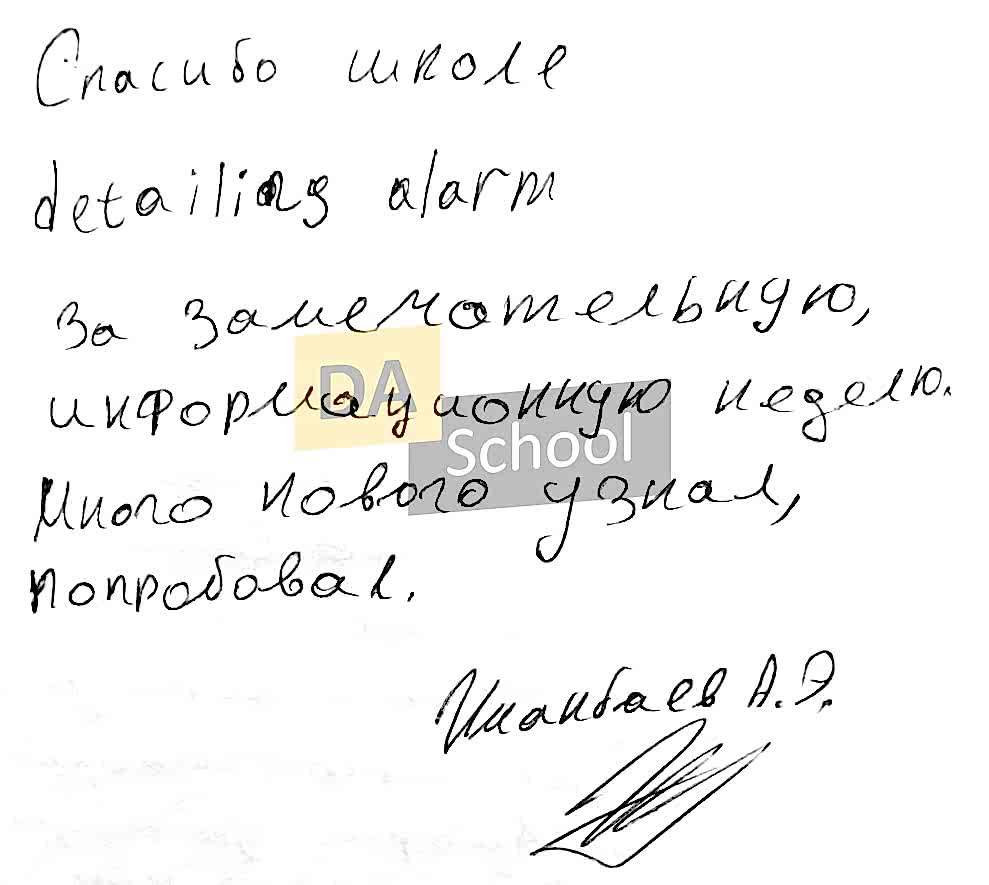 Спасибо школе
detailing alarm
за замечательную,
DA
информационную неделю.
School
Много нового узнал,
попробовал.
А.Э.